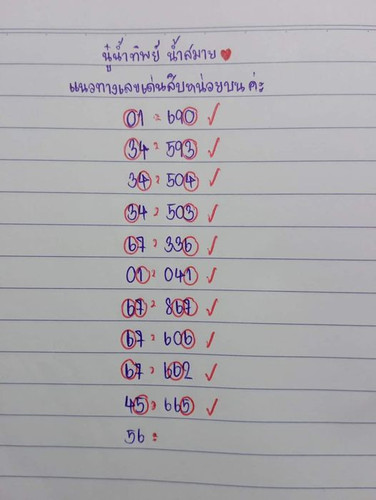 นู๋น้ำทิพย์ น้ำสมาย ♥
แนวทางเลขเด่นสิบหน่อยบน ค่ะ
01 = 690 ✓
34 = 593 ✓
34 = 504 ✓
34 = 503 ✓
67 = 336 ✓
01 = 041 ✓
67 = 867 ✓
67 = 606 ✓
67 = 662 ✓
45 = 665 ✓
56 =